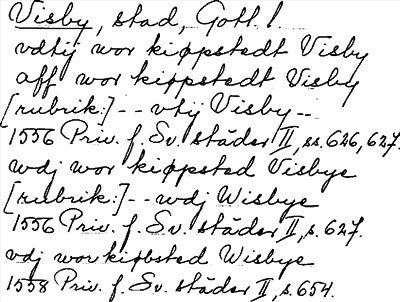 Visby, stad, Gotl. l.
vdtij wor kiøpstedt Visby
aff wor kiøpstedt Visby
[rubrik:] -- vtij Visby --
1556 Priv. f. Sv. städer II, ss. 626, 627.
wdj wor kiøpsted Visbye
[rubrik:] -- wdj Wisbye
1556 Priv. f. Sv. städer II, s. 627.
vdj wor kiøbsted Wisbye
1558 Priv. f. Sv. städer II, s. 654.